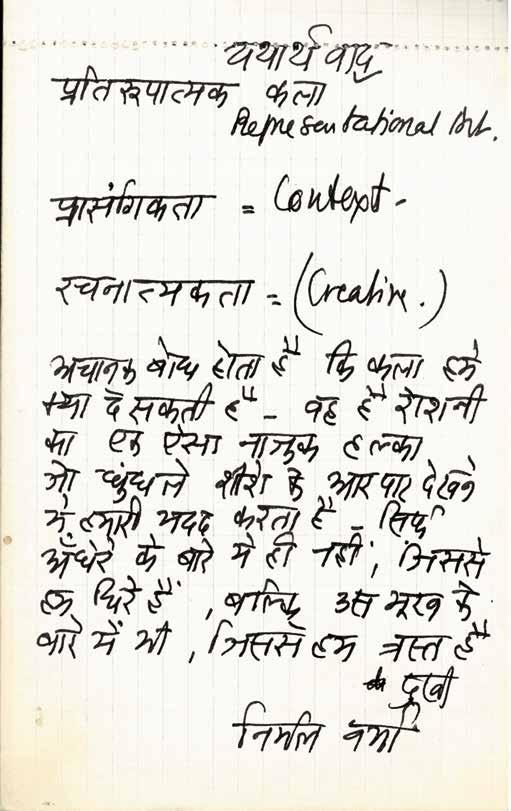 यथार्थ वाद
प्रतिरूपात्मक कला
Representational Art.
प्रासंगिकता = Context -
रचनात्मकता = (Creative.)
अचानक बोध होता है कि कला हमें
क्या दे सकती है - वह है रोशनी
का एक ऐसा नाजुक हल्का
जो धुंधले शीशे के आर पार देखने
में हमारी मदद करता है - सिर्फ
अँधेरे के बारे में ही नहीं, जिससे
हम घिरे हैं, बल्कि उस भूख के
बारे में भी, जिससे हम त्रस्त हैं
दुखी
निर्मल वर्मा